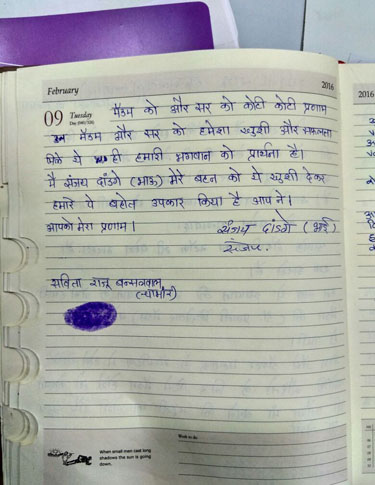 February
2016
09 Tuesday
मैडम को और सर को कोटी कोटी प्रणाम
मैडम और सर को हमेशा खुशी और सफलता
मिले ये ही हमारी भगवान को प्रार्थना है।
मै संजय दांडगे (भाऊ) मेरे बहन को ये खुशी देकर
हमारे पे बहोत उपकार किया है आप ने।
आपको मेरा प्रणाम।
संजय दांडगे (भाई)
संजय.
सविता राजू
When small men cast long
shadows the sun is going
down.
Work to do
2016